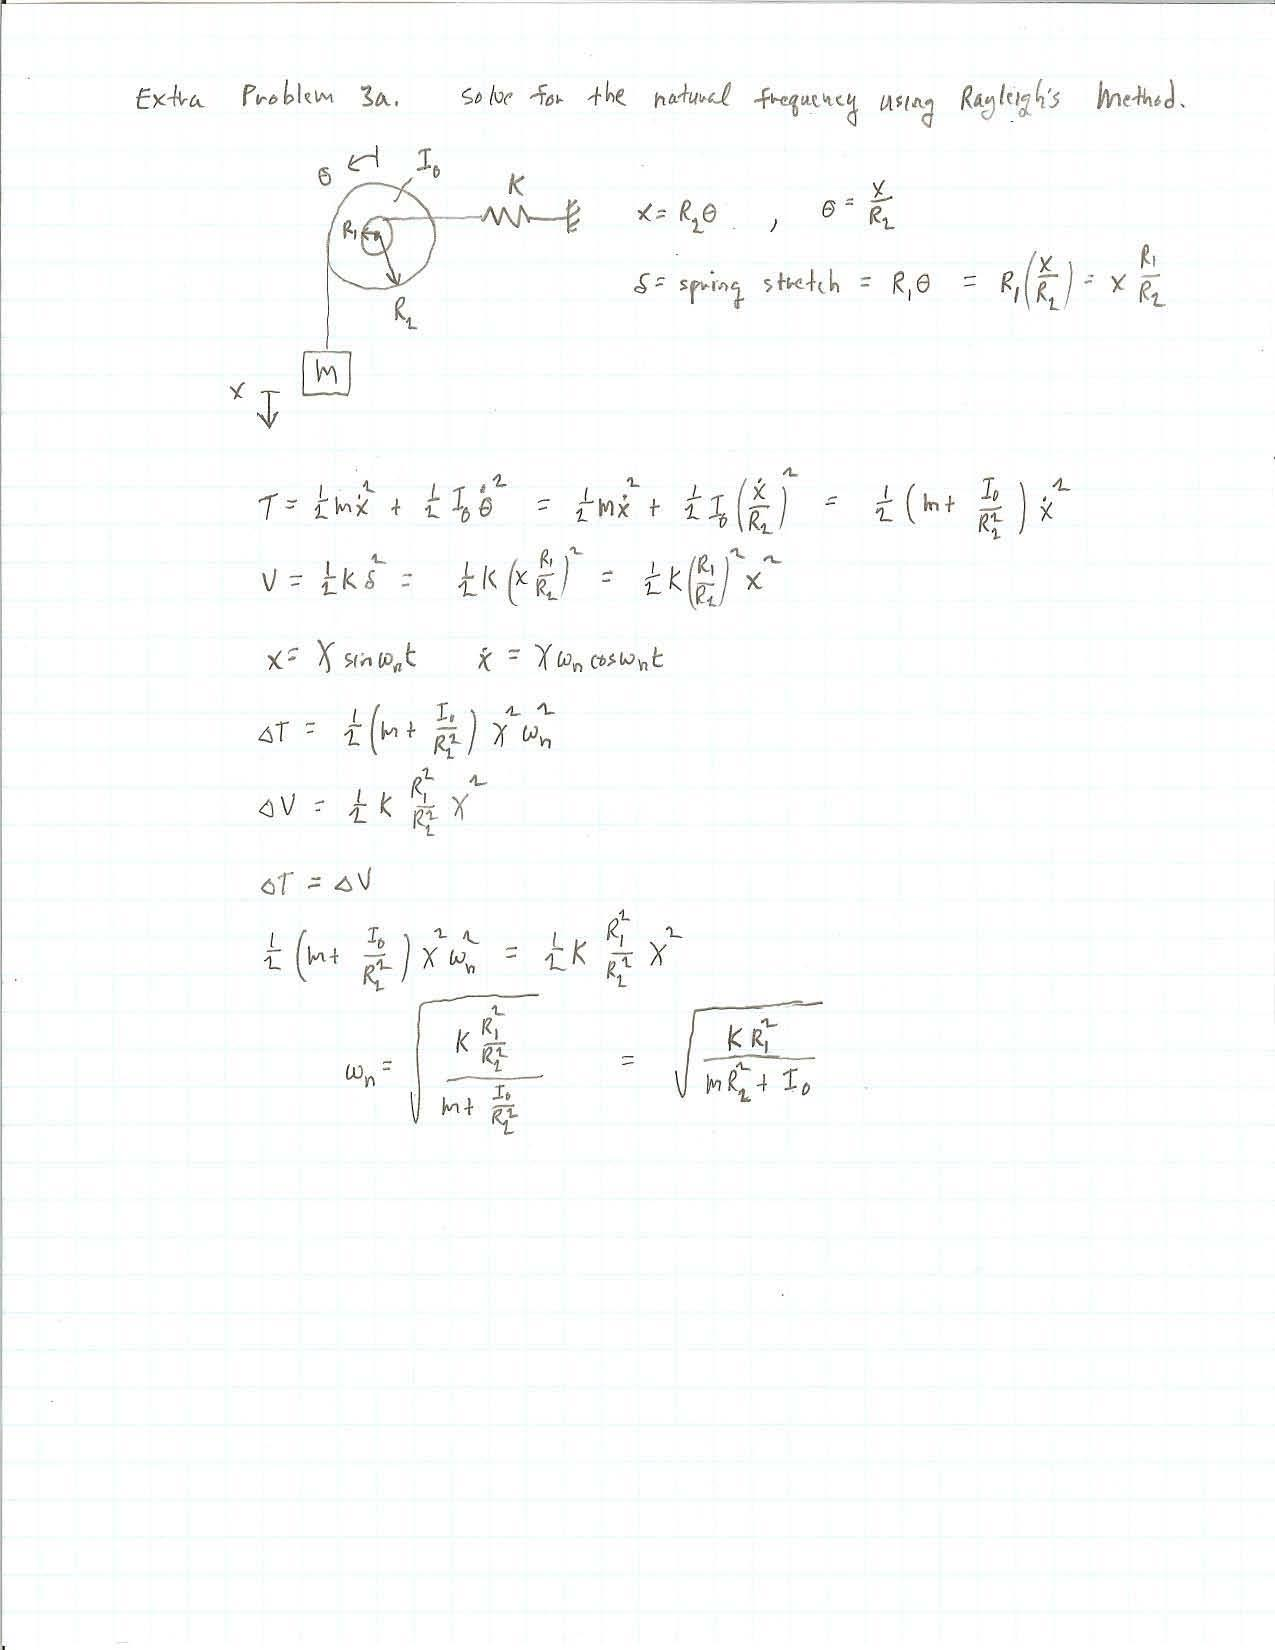 Extra Problem 3a. Solve for the natural frequency using Rayleigh's Method.
θ I₀
K
R₁
R₂
m
x
x = R₂θ , θ = x/R₂
δ = spring stretch = R₁θ = R₁(x/R₂) = x R₁/R₂
T = ½mẋ² + ½I₀θ̇² = ½mẋ² + ½I₀(ẋ/R₂)² = ½(m + I₀/R₂²)ẋ²
V = ½Kδ² = ½K(x R₁/R₂)² = ½K(R₁/R₂)²x²
x = X sinωₙt ẋ = Xωₙcosωₙt
ΔT = ½(m + I₀/R₂²)X²ωₙ²
ΔV = ½K R₁²/R₂² X²
ΔT = ΔV
½(m + I₀/R₂²)X²ωₙ² = ½K R₁²/R₂² X²
ωₙ = √((K R₁²/R₂²)/(m + I₀/R₂²)) = √(K R₁²/(mR₂² + I₀))